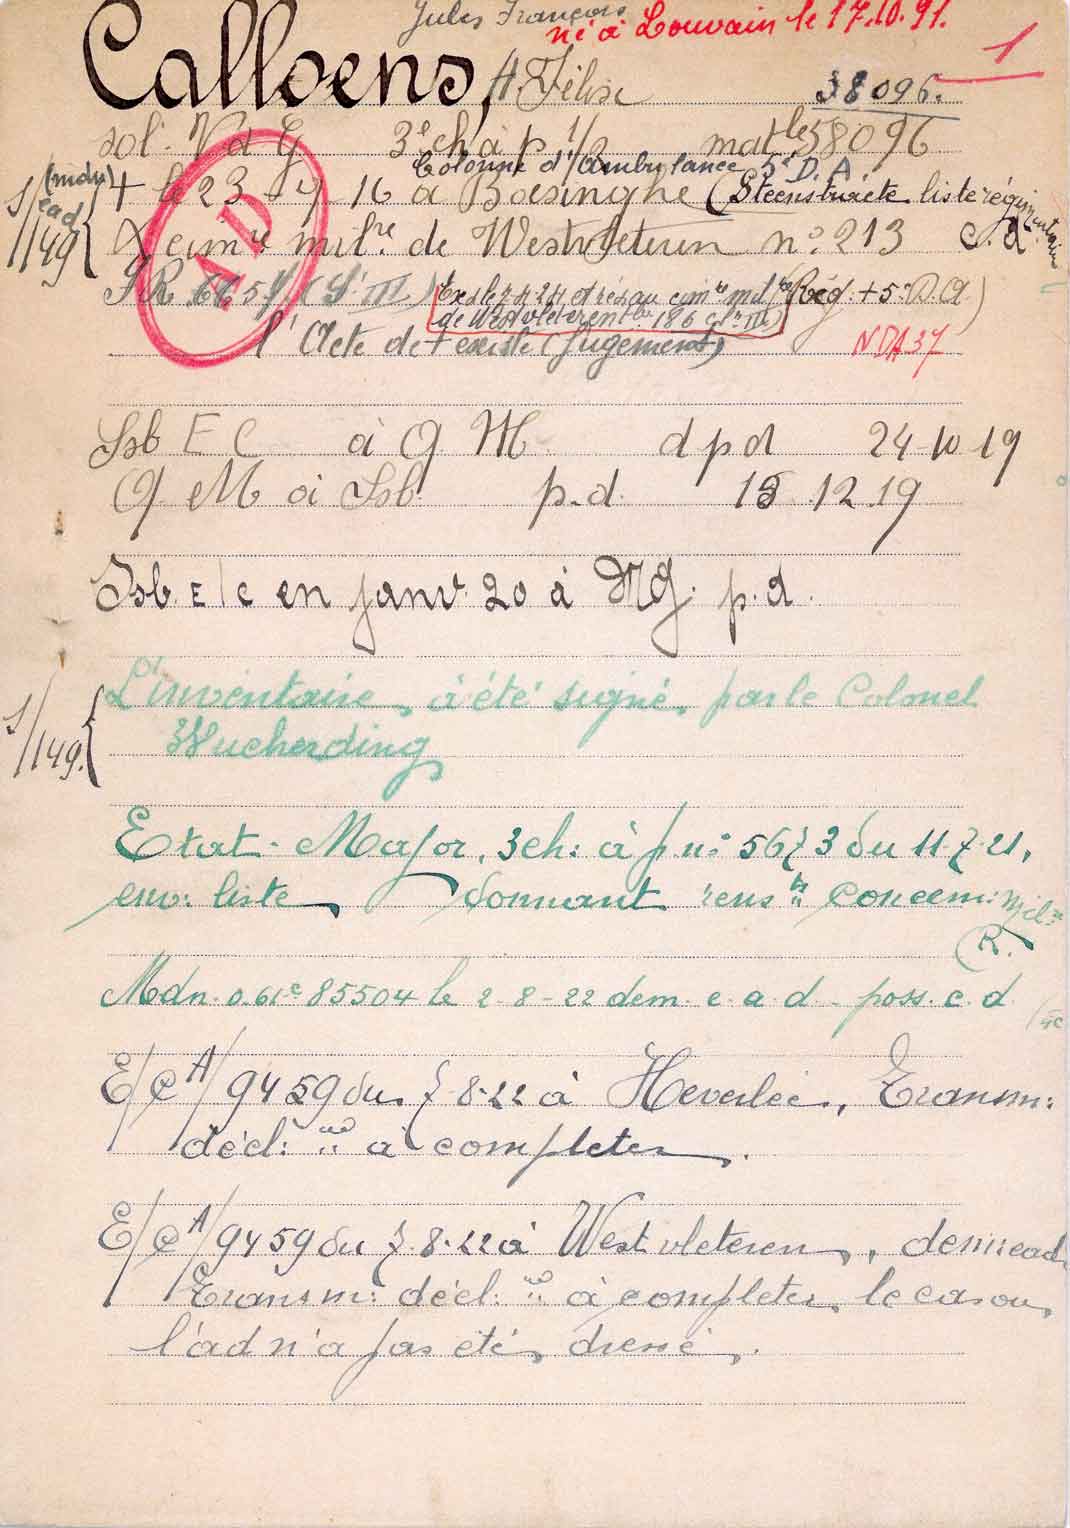 Jules François
né à Louvain le 17.10.91.
1
Calloens, A. Félix 38096.
sol. V d G 3e ch à p 1/2 mat le 58096
Colonne d'ambulance 5e D. A
(mdn) + le 23-4 16 à Boesinghe (Steenstraete liste régimentaire
S/149 ead
X cimre milre de Westvleteren no 213 c.d.
AD
(Rég. + 5e D.A.)
Exd le 7.4.24 et réinh au cimre mil
de Westvleteren 186
l'Acte de + existe (jugement) NDA 37
Ssb E C à Q M d p d 24-10-19
Q M à Ssb. p.d. 15.12.19
Ssb. E/C en janv. 20 à MG. p.d.
L'inventaire, a été signé, par le Colonel
S/149. Wucherding
Etat-Major, 3 ch: à p no 5673 du 11-7-21,
env: liste, donnant rensts concern: milre
R.
Mdn. 0.61e 85504 le 2-8-22 dem. e.a.d. poss. c.d.
E/CA/9459 du 7-8-22 à Heverlée, Transm:
décl: à completer.
E/CA/9459 du 7.8.22 à Westvleteren, dem: ead
Transm: décl: à completer, le cas ou,
l'ad n'a pas été, dressé,.